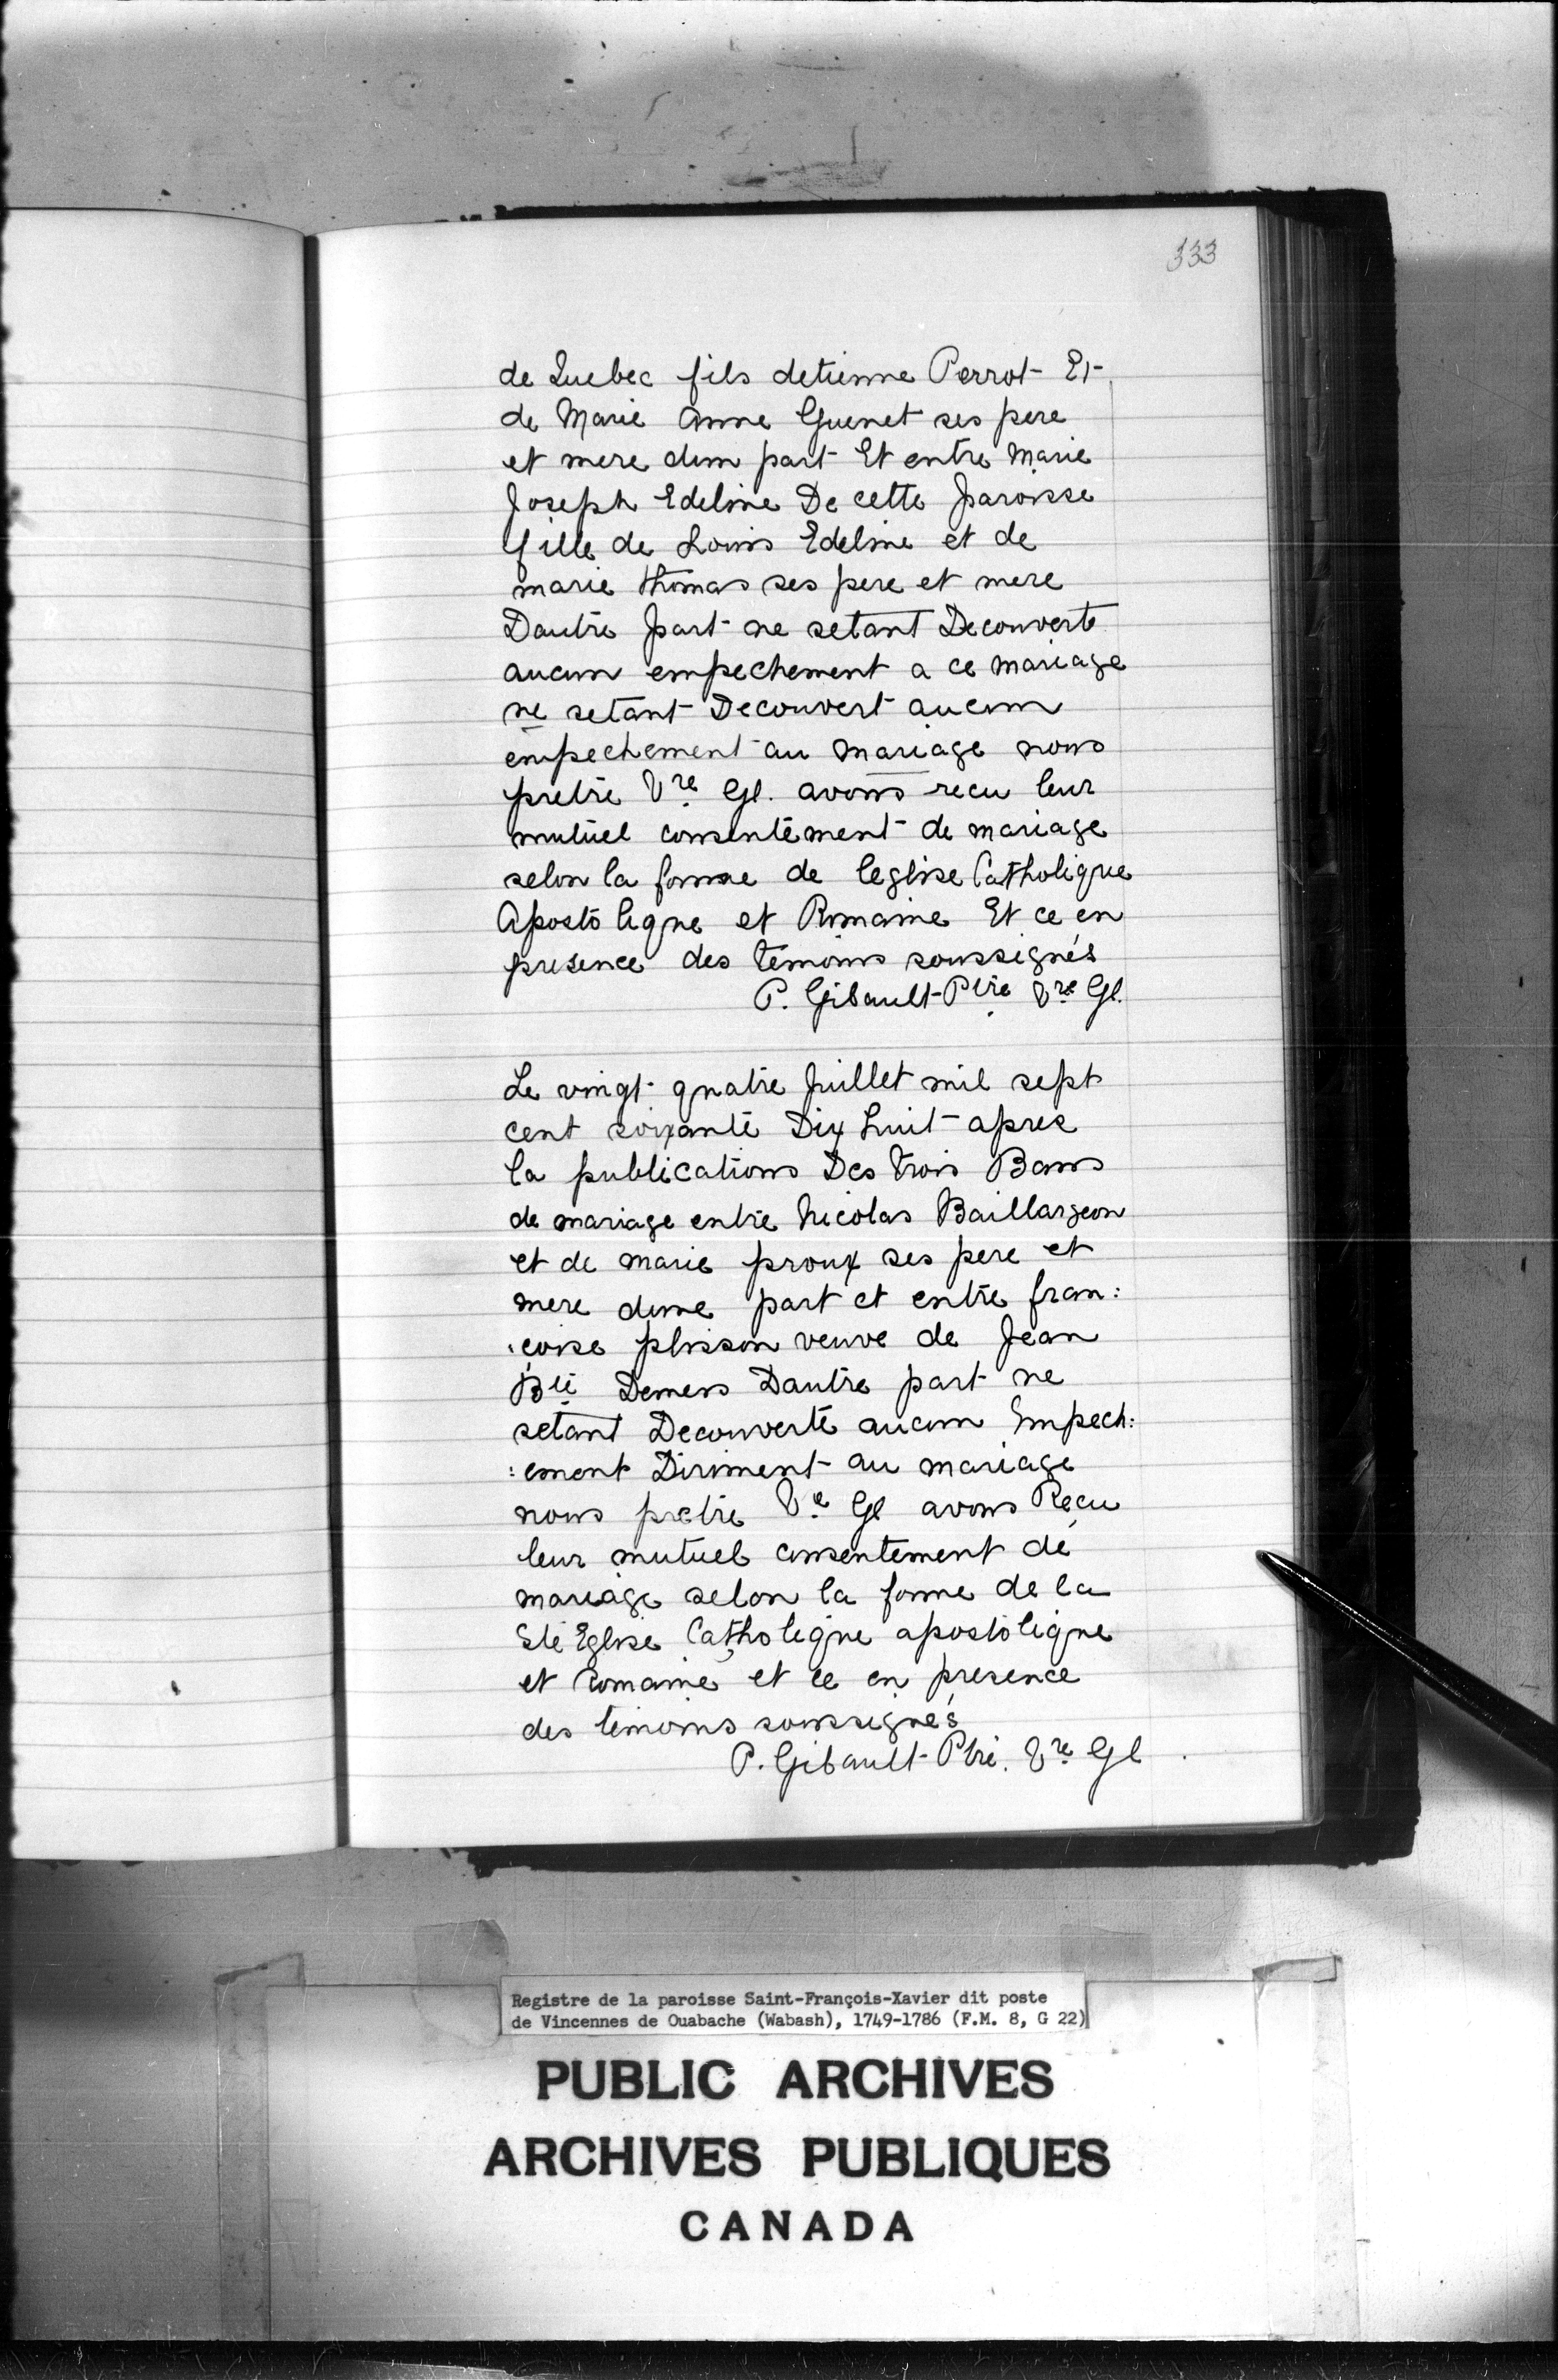 333
de Quebec fils detienne Perrot Et
de Marie Anne Guenet ses pere
et mere dun part Et entre Marie
Joseph Edeline De cette paroisse
fille de Louis Edeline et de
marie thomas ses pere et mere
Dautre part ne setant Decouverte
aucun empechement a ce mariage
ne setant Decouvert aucun
empechement au mariage nous
pretre Vre Gl. avons recu leur
mutuel consentement de mariage
selon la forme de leglise Catholique
Apostolique et Romaine Et ce en
presence des temoins soussignés
P. Gibault Ptre Vre Gl.
Le vingt quatre Juillet mil sept
cent soixante Dix huit apres
la publications Des trois Bans
de mariage entre Nicolas Baillargeon
et de marie proux ses pere et
mere dune part et entre fran:
:coise plisson veuve de Jean
Bte Demers Dautre part ne
setant Decouverte aucun Empech:
:ement Diriment au mariage
nous pretre Ve Gl avons Reçu
leur mutuel consentement de
mariage selon la forme de la
Ste Eglise Catholique apostolique
et Romaine, et ce en presence
des temoins soussignés
P. Gibault Ptre. Vre Gl
Registre de la paroisse Saint-François-Xavier dit poste
de Vincennes de Ouabache (Wabash), 1749-1786 (F.M. 8, G 22)
PUBLIC ARCHIVES
ARCHIVES PUBLIQUES
CANADA